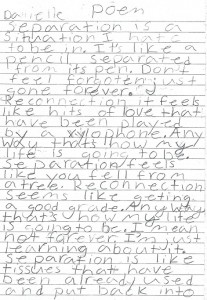 Danielle Poem
separation is a
situation I hate
to be in. It's like a
pencil separated
from its pen. Don't
feel forgoten; just
gone forever.
Reconnection it feels
like hits of love that
have been played
by a xylophone. Any
way thats how my
life is going to be.
Separation feels
like you fell from
a tree. Reconnection
seems like geting
a good grade. Any way
that's how my life
is going to be. I mean
not forever. I'm just
learning about it.
Separation is like
tissues that have
been already used
and put back into